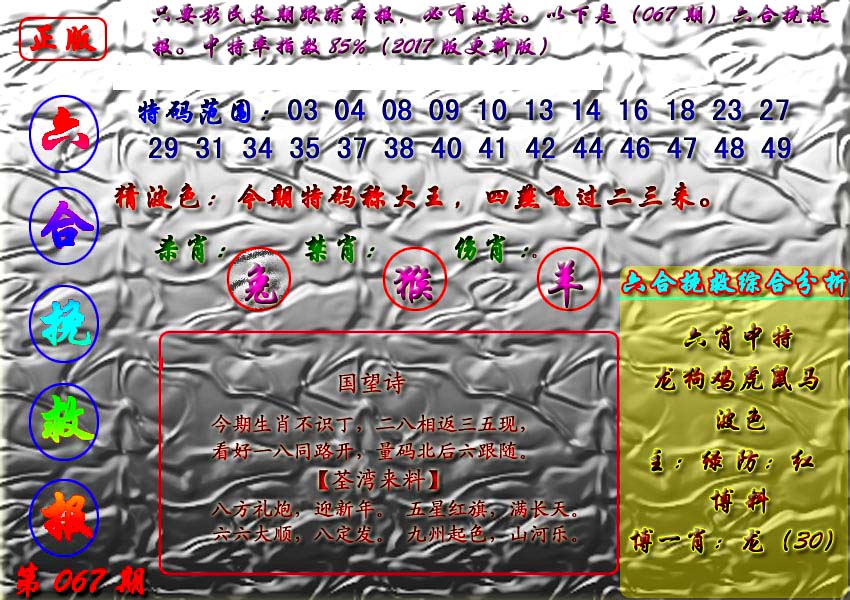 正版
只要彩民长期跟踪本报，必有收获。以下是（067期）六合挽救
报。中特率指数85%（2017版更新版）
六合挽救报
第067期
特码范围：03 04 08 09 10 13 14 16 18 23 27
29 31 34 35 37 38 40 41 42 44 46 47 48 49
猜波色：今期特码称大王，四燕飞过二三来。
杀肖：兔 禁肖：猴 伤肖：羊。
国望诗
今期生肖不识丁，二八相返三五现，
看好一八同路开，量码北后六跟随。
【荃湾来料】
八方礼炮，迎新年。 五星红旗，满长天。
六六大顺，八定发。 九州起色，山河乐。
六合挽救综合分析
六肖中特
龙狗鸡虎鼠马
波色
主：绿防：红
博料
博一肖：龙（30）